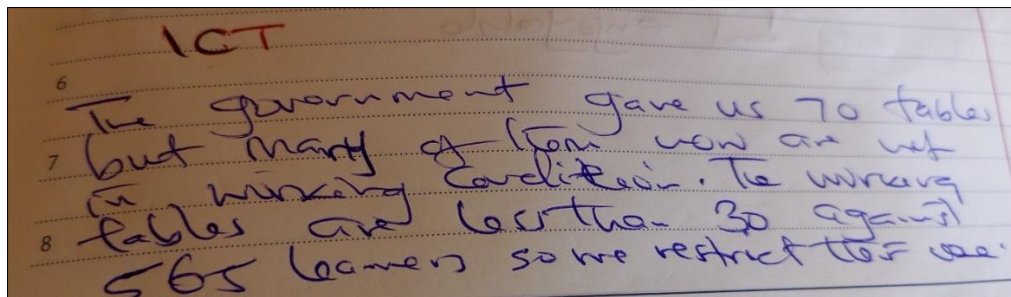 ICT
6
The government gave us 70 tables
7 but many of them now are not
in working condition. The working
8 tables are less than 30 against
565 learners so we restrict their use.